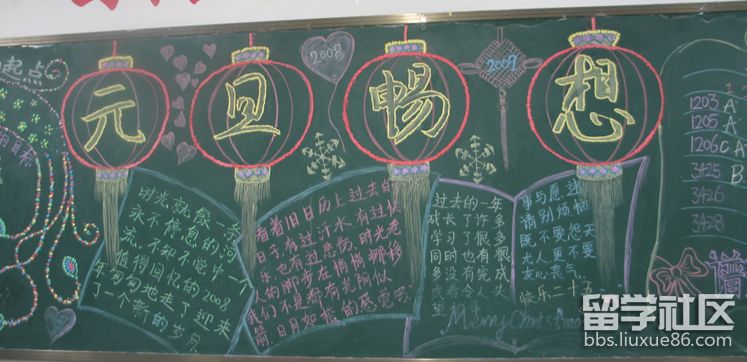 元旦畅想
2008
2009
起点
时光就像一条
永不停息的河
流，不知不觉中一个
值得回忆的2008
年匆匆地走了迎来
了一个新的岁月
看着旧日历上过去的
日子，有过汗水，有过快
乐，也有过悲伤，时光老
人的脚步在悄悄挪移
我们不是都有光阴似
箭，日月如梭的感觉吗
过去的一年
成长了许多
学习了很多
同时也有很
多没有完成
步与愿违
请别烦恼
既不要怨天
尤人更不要
灰心丧气
快乐二十五
Merry Christmas
1203 A
1205 A
1206 C A
3425 B
3426
3428
留学社区
bbs.liuxue86.com